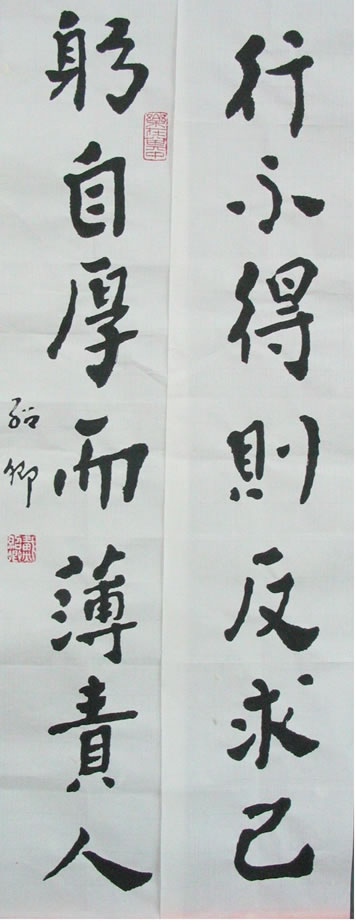 行不得則反求己
躬自厚而薄責人